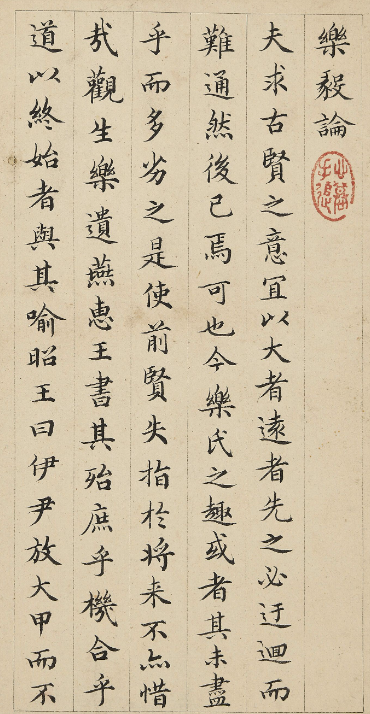 樂毅論
夫求古賢之意宜以大者遠者先之必迂迴而
難通然後已焉可也今樂氏之趣或者其未盡
乎而多劣之是使前賢失指於將来不亦惜
哉觀生樂遺燕惠王書其殆庶乎機合乎
道以終始者與其喻昭王曰伊尹放大甲而不